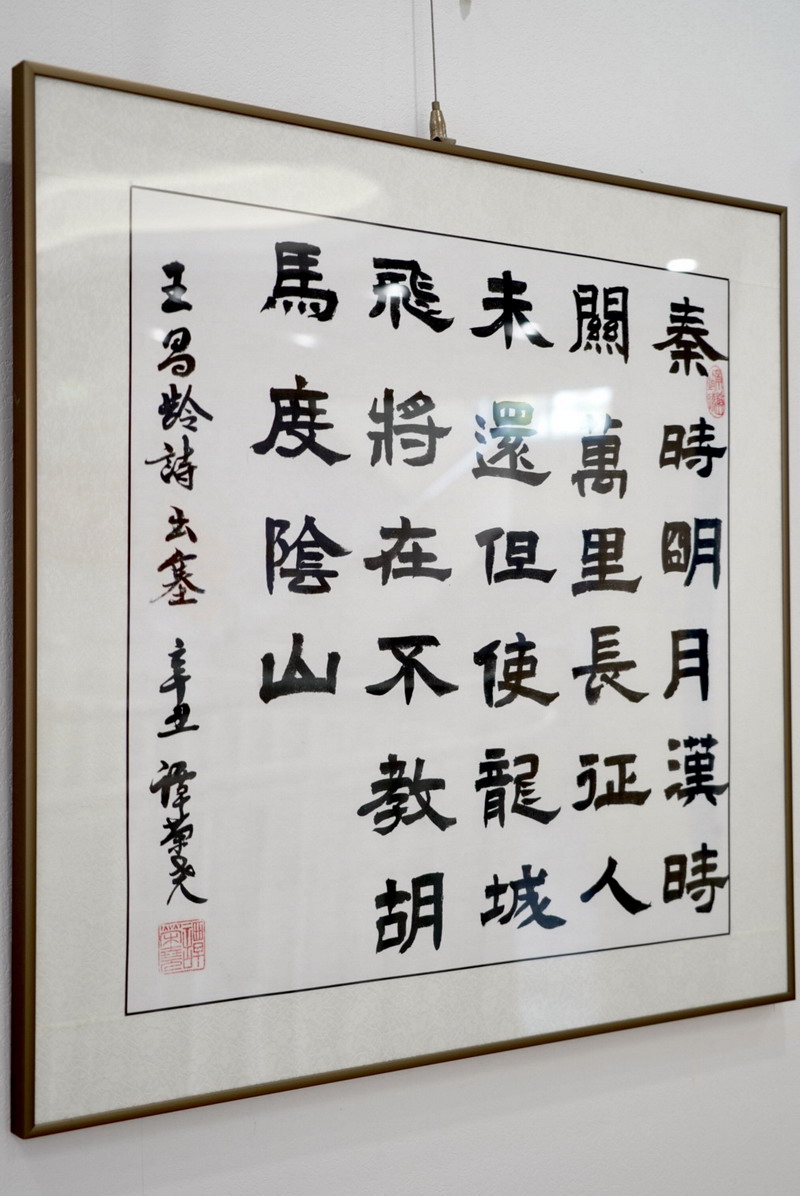 秦時明月漢時
關萬里長征人
未還但使龍城
飛將在不教胡
馬度陰山
王昌龄詩出塞 辛丑 譚菊尧